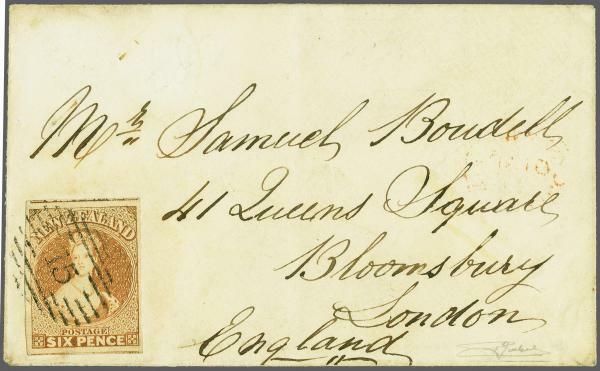 Mrs Samuel Boudell
41 Queens Square
Bloomsbury
London
England
NEW ZEALAND
15
POSTAGE
SIX PENCE